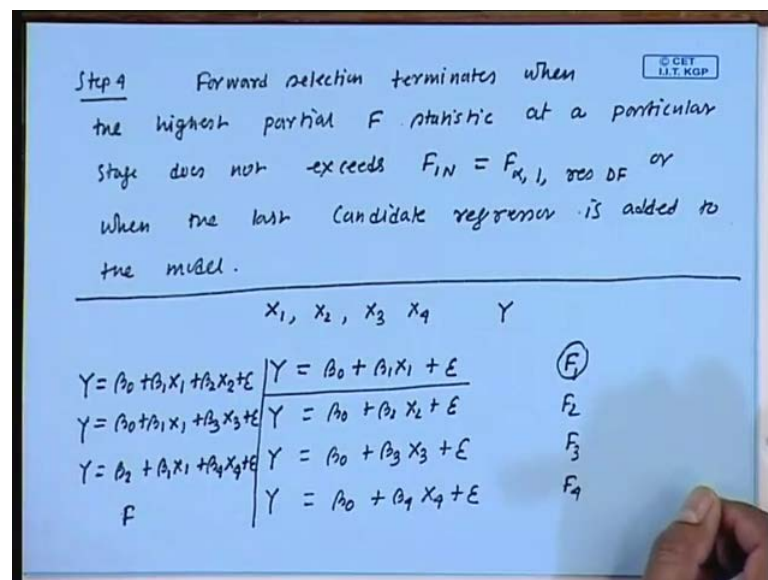 Step 4 Forward selection terminates when
the highest partial F statistic at a particular
stage does not exceeds F_IN = F_α, 1, res DF or
when the last candidate regressor is added to
the model.
© CET
I.I.T. KGP
X₁, X₂, X₃ X₄ Y
Y = β₀ + β₁X₁ + β₂X₂ + ε | Y = β₀ + β₁X₁ + ε F₁
Y = β₀ + β₁X₁ + β₃X₃ + ε | Y = β₀ + β₂ X₂ + ε F₂
Y = β₂ + β₁X₁ + β₄X₄ + ε | Y = β₀ + β₃ X₃ + ε F₃
F | Y = β₀ + β₄ X₄ + ε F₄